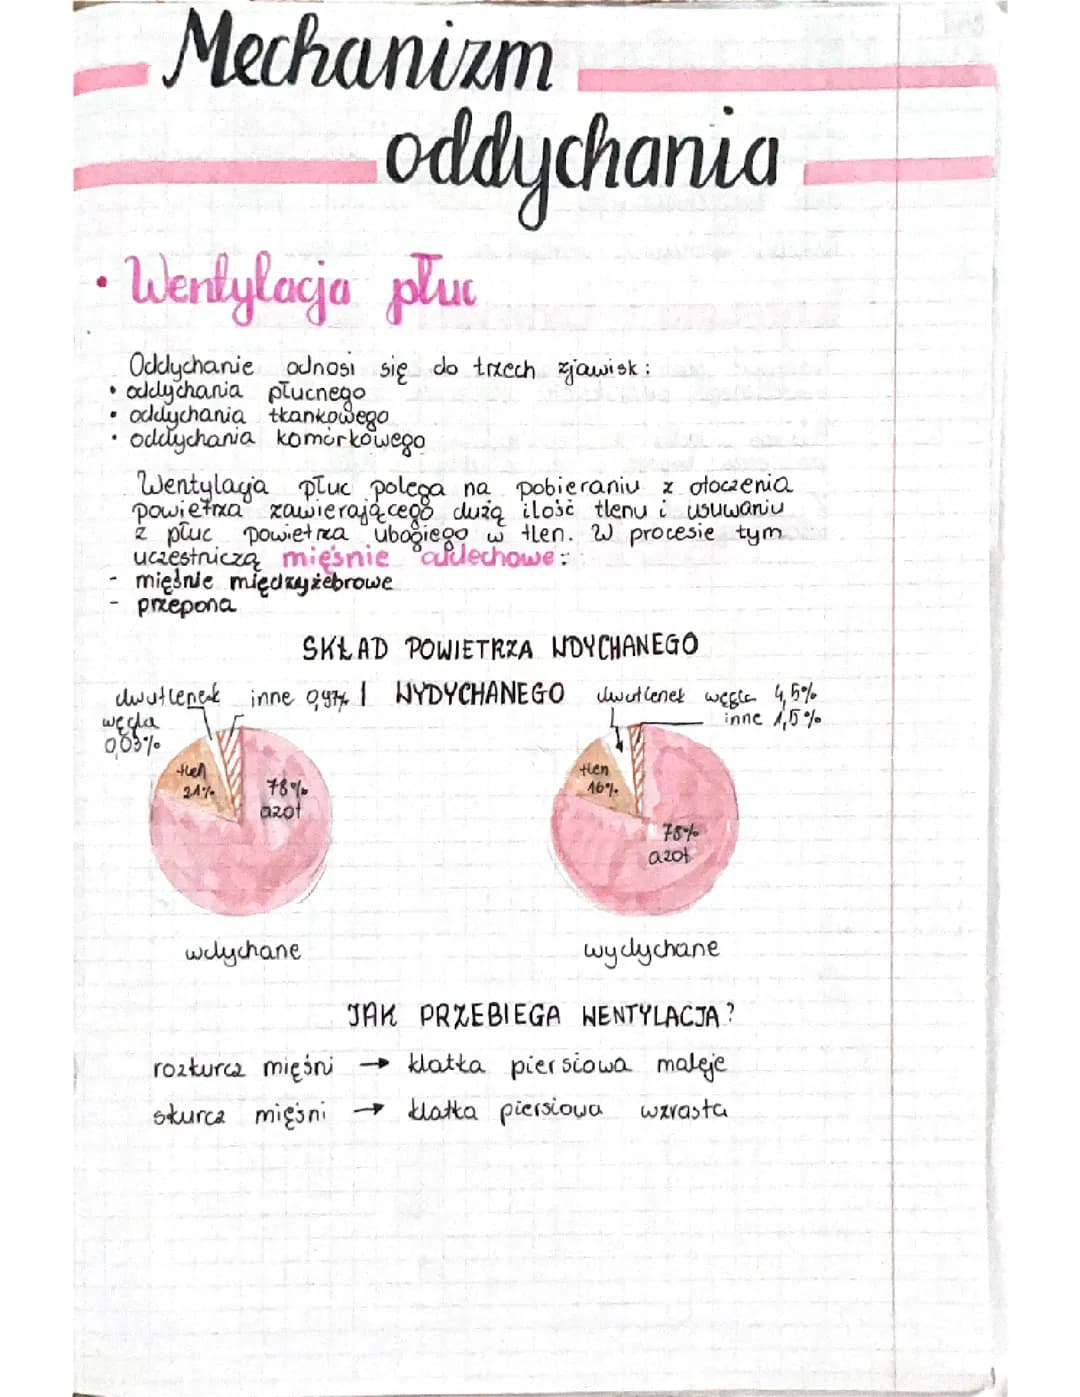 Mechanizm
oddychania
• Wentylacja płuc
Oddychanie odnosi się do trzech zjawisk:
• oddychania płucnego
• oddychania tkankowego
• oddychania komórkowego
Wentylacja płuc polega na pobieraniu z otoczenia
powietrza zawierającego dużą ilość tlenu i usuwaniu
z płuc powietrza ubogiego w tlen. W procesie tym
uczestniczą mięśnie oddechowe:
- mięśnie międzyżebrowe
- przepona
SKŁAD POWIETRZA WDYCHANEGO
I WYDYCHANEGO
dwutlenek
węgla
0,03%
inne 0,97%
tlen
21%
78%
azot
wdychane
dwutlenek węgla 4,5%
inne 1,5%
tlen
16%
78%
azot
wydychane
JAK PRZEBIEGA WENTYLACJA?
rozkurcz mięśni → klatka piersiowa maleje
skurcz mięśni → klatka piersiowa wzrasta